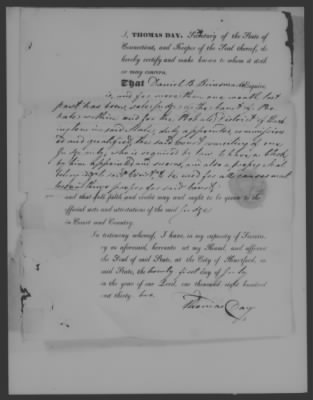 I, THOMAS DAY, Secretary of the State of
Connecticut, and Keeper of the Seal thereof, do
hereby certify and make known to whom it doth
or may concern,
THAT Daniel B Brinsmade Esquire
is, and for more than one month last
past has been, sole judge of the court of Pro
bate within and for the Probate District of Wash
ington in said State, duly appointed, commission
ed and qualified, the said court consisting of one
Judge only, who is required by law to have a clerk
by him appointed and sworn, and also a
to be used for all
said court
and that full faith and credit may and ought to be given to the
official acts and attestations of the said Judge
in Court and Country.
In testimony whereof, I have, in my capacity of Secreta-
ry as aforesaid, hereunto set my Hand, and affixed
the Seal of said State, at the City of Hartford, in
said State, the twenty first day of July
in the year of our Lord, one thousand eight hundred
and thirty two
Thomas Day